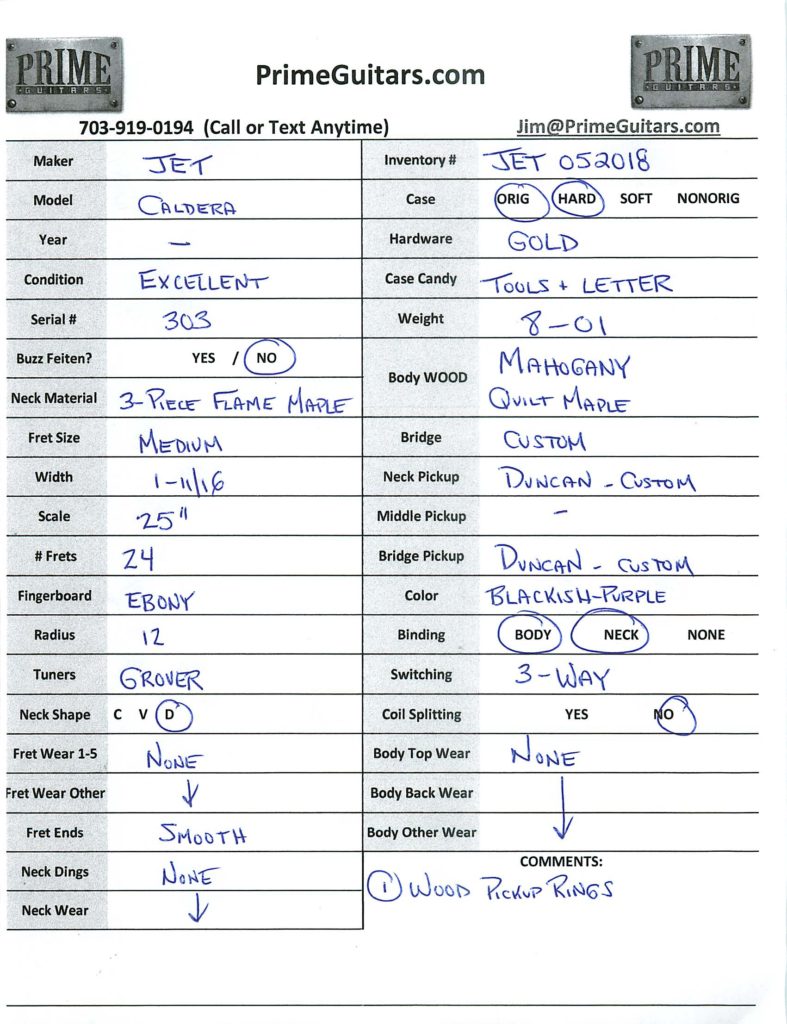 PRIME
GUITARS
PrimeGuitars.com
PRIME
GUITARS
703-919-0194 (Call or Text Anytime)
Jim@PrimeGuitars.com
Maker JET
Inventory # JET 052018
Model CALDERA
Case ORIG HARD SOFT NONORIG
Year —
Hardware GOLD
Condition EXCELLENT
Case Candy TOOLS + LETTER
Serial # 303
Weight 8-01
Buzz Feiten? YES / NO
Body WOOD MAHOGANY
QUILT MAPLE
Neck Material 3-PIECE FLAME MAPLE
Fret Size MEDIUM
Bridge CUSTOM
Width 1-11/16
Neck Pickup DUNCAN - CUSTOM
Scale 25"
Middle Pickup -
# Frets 24
Bridge Pickup DUNCAN - CUSTOM
Fingerboard EBONY
Color BLACKISH-PURPLE
Radius 12
Binding BODY NECK NONE
Tuners GROVER
Switching 3-WAY
Neck Shape C V D
Coil Splitting YES NO
Fret Wear 1-5 NONE
Body Top Wear NONE
Fret Wear Other ↓
Body Back Wear ↓
Fret Ends SMOOTH
Body Other Wear
Neck Dings NONE
COMMENTS:
① WOOD PICKUP RINGS
Neck Wear ↓